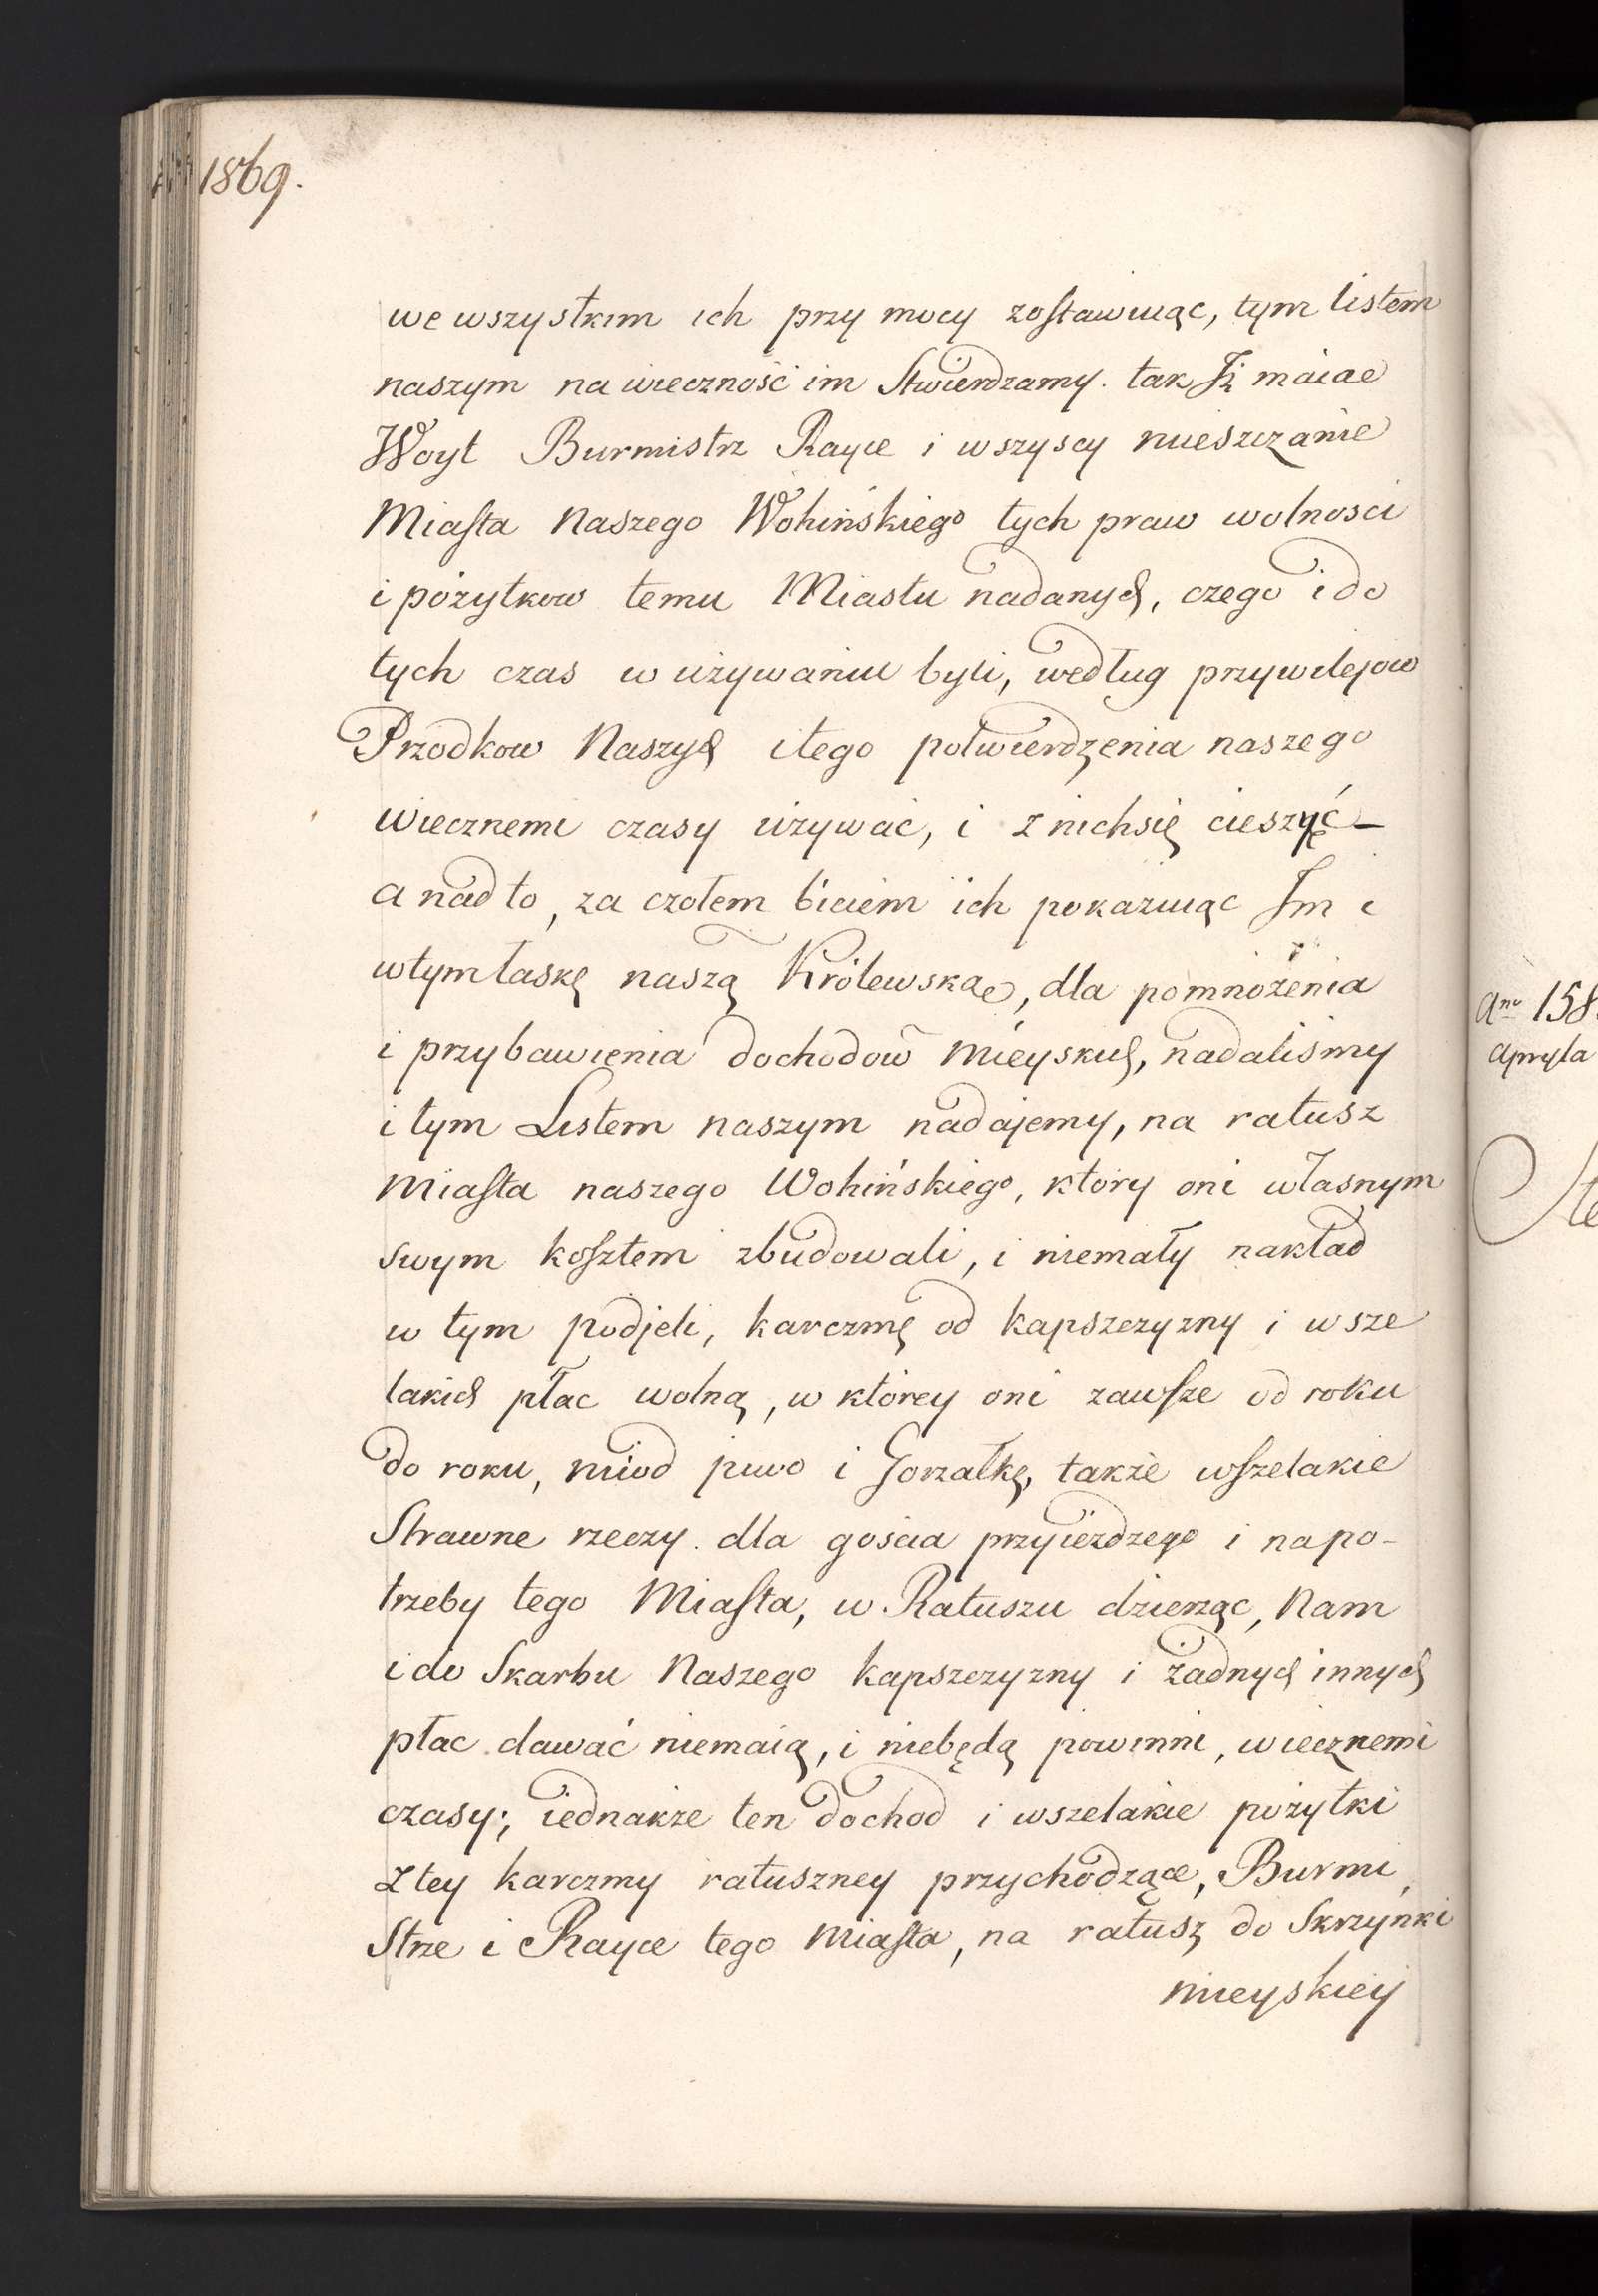 1869.
we wszystkim ich przy mocy zostawuiąc, tym listem
naszym na wieczność im Stwierdzamy. tak Iż maiae
Woyt Burmistrz Rayce i wszyscy mieszczanie
Miasta Naszego Wohińskiego tych praw wolnosci
i pożytkow temu Miastu nadanych, czego i do
tych czas w używaniu byli, według przywilejow
Przodkow Naszych i tego potwierdzenia naszego
wiecznemi czasy używać, i z nich się cieszyć –
a nad to, za czołem biciem ich pokazuiąc Im i
w tym łaskę naszą Królewską, dla pomnożenia
i przybawienia dochodow mieyskich, nadalismy
i tym Listem naszym nadajemy, na ratusz
Miasta naszego Wohińskiego, ktory oni własnym
swym kosztem zbudowali, i niemały nakład
w tym podjeli, karczmę od kapszczyzny i wsze
lakich płac wolną, w którey oni zawsze od roku
do roku, miod piwo i Gorzałkę, także wszelakie
Strawne rzeczy. dla goscia przyieżdzego i na po-
trzeby tego Miasta, w Ratuszu dzierząc, Nam
i do Skarbu Naszego kapszczyzny i żadnych innych
płac dawać niemaią, i niebędą powinni, wiecznemi
czasy; iednakże ten dochod i wszelakie pożytki
z tey karczmy ratuszney przychodzące, Burmi,
Strze i Rayce tego Miasta, na ratusz do Skrzynki
mieyskiey
Ano 158
Apryla